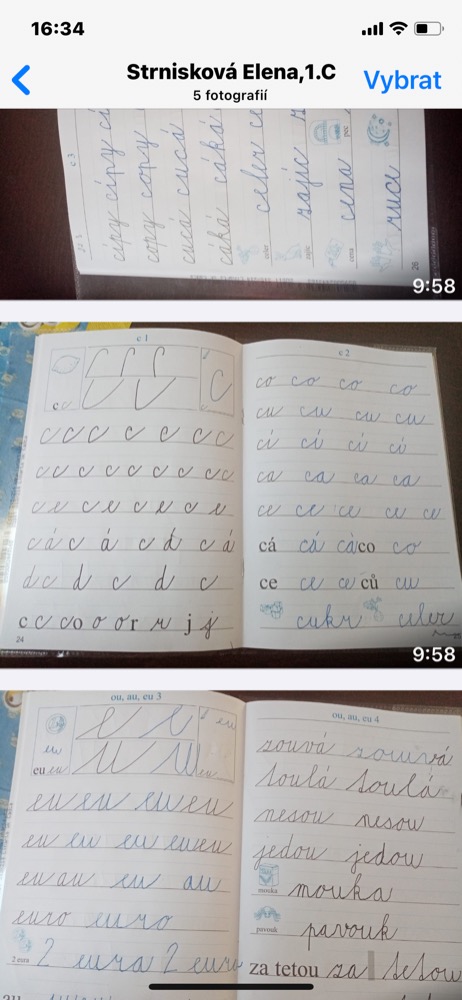 16:34
Strnisková Elena,1.C
5 fotografií
Vybrat
c 3
cípy cípy cí
copy copy
cucá cucá
cáká cáká
celer ce
zajíc
cena
ruce
zajíc
cena
pec
26
9:58
c 1
c c
c c c c c c c
c c c c c c c c
c e c e c e c e c e
c á c á c á c á
d c d c d c
c c c o o o r r j j
24
c 2
co co co co
cu cu cu cu
ci cí cí cí
ca ca ca ca
ce ce ce ce ce
cá cá cá co co
ce ce ce ců cu
cukr
9:58
ou, au, eu 3
eu
eu eu
eu eu eu eu
eu eu eu eu eu
eu au eu au
euro euro
2 eura 2 eura 2 eura
ou, au, eu 4
zouvá zouvá
toulá toulá
nesou nesou
jedou jedou
mouka mouka
pavouk pavouk
za tetou za tetou
9:58